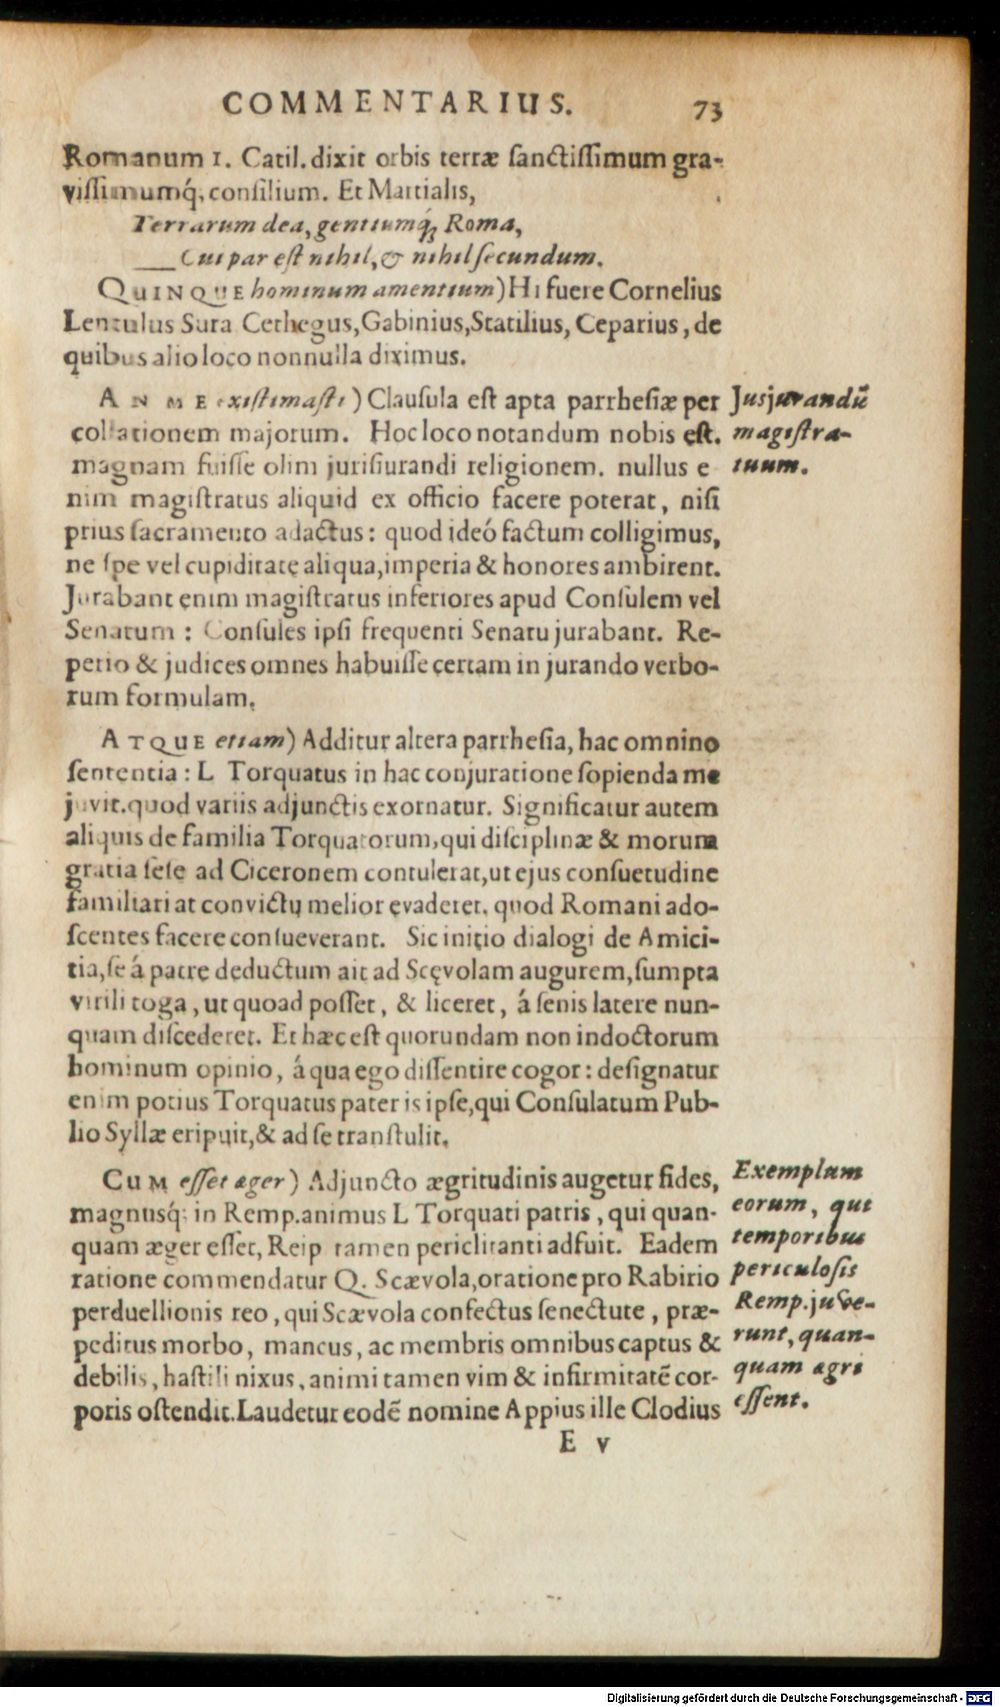 COMMENTARIUS. 73
Romanum 1. Catil. dixit orbis terræ sanctissimum gra-
vissimumq́; consilium. Et Martialis,
Terrarum dea, gentiumq́; Roma,
Cui par est nihil, & nihil secundum.
QUINQUE hominum amentium) Hi fuere Cornelius
Lentulus Sura Cethegus, Gabinius, Statilius, Ceparius, de
quibus alio loco nonnulla diximus.
AN ME existimasti) Clausula est apta parrhesiæ per
collationem majorum. Hoc loco notandum nobis est.
magnam fuisse olim jurisiurandi religionem. nullus e
nim magistratus aliquid ex officio facere poterat, nisi
prius sacramento adactus: quod ideó factum colligimus,
ne spe vel cupiditate aliqua, imperia & honores ambirent.
Jurabant enim magistratus inferiores apud Consulem vel
Senatum: Consules ipsi frequenti Senatu jurabant. Re-
perio & judices omnes habuisse certam in jurando verbo-
rum formulam.
Jusjurandũ
magistra-
tuum.
ATQUE etiam) Additur altera parrhesia, hac omnino
sententia: L Torquatus in hac conjuratione sopienda me
juvit. quod variis adjunctis exornatur. Significatur autem
aliquis de familia Torquatorum, qui disciplinæ & morum
gratia sese ad Ciceronem contulerat, ut ejus consuetudine
familiari at convictu melior evaderet. quod Romani ado-
scentes facere consueverant. Sic initio dialogi de Amici-
tia, se á patre deductum ait ad Scęvolam augurem, sumpta
virili toga, ut quoad posset, & liceret, á senis latere nun-
quam discederet. Et hæc est quorundam non indoctorum
hominum opinio, á qua ego dissentire cogor: designatur
enim potius Torquatus pater is ipse, qui Consulatum Pub-
lio Syllæ eripuit, & ad se transtulit.
CUM esset æger) Adjuncto ægritudinis augetur fides,
magnusq́; in Remp. animus L Torquati patris, qui quan-
quam æger esset, Reip tamen periclitanti adfuit. Eadem
ratione commendatur Q. Scævola, oratione pro Rabirio
perduellionis reo, qui Scævola confectus senectute, præ-
peditus morbo, mancus, ac membris omnibus captus &
debilis, hastili nixus, animi tamen vim & infirmitatẽ cor-
poris ostendit. Laudetur eodẽ nomine Appius ille Clodius
Exemplum
eorum, qui
temporibus
periculosis
Remp. juve-
runt, quan-
quam ægri
essent.
E v
Digitalisierung gefördert durch die Deutsche Forschungsgemeinschaft - DFG